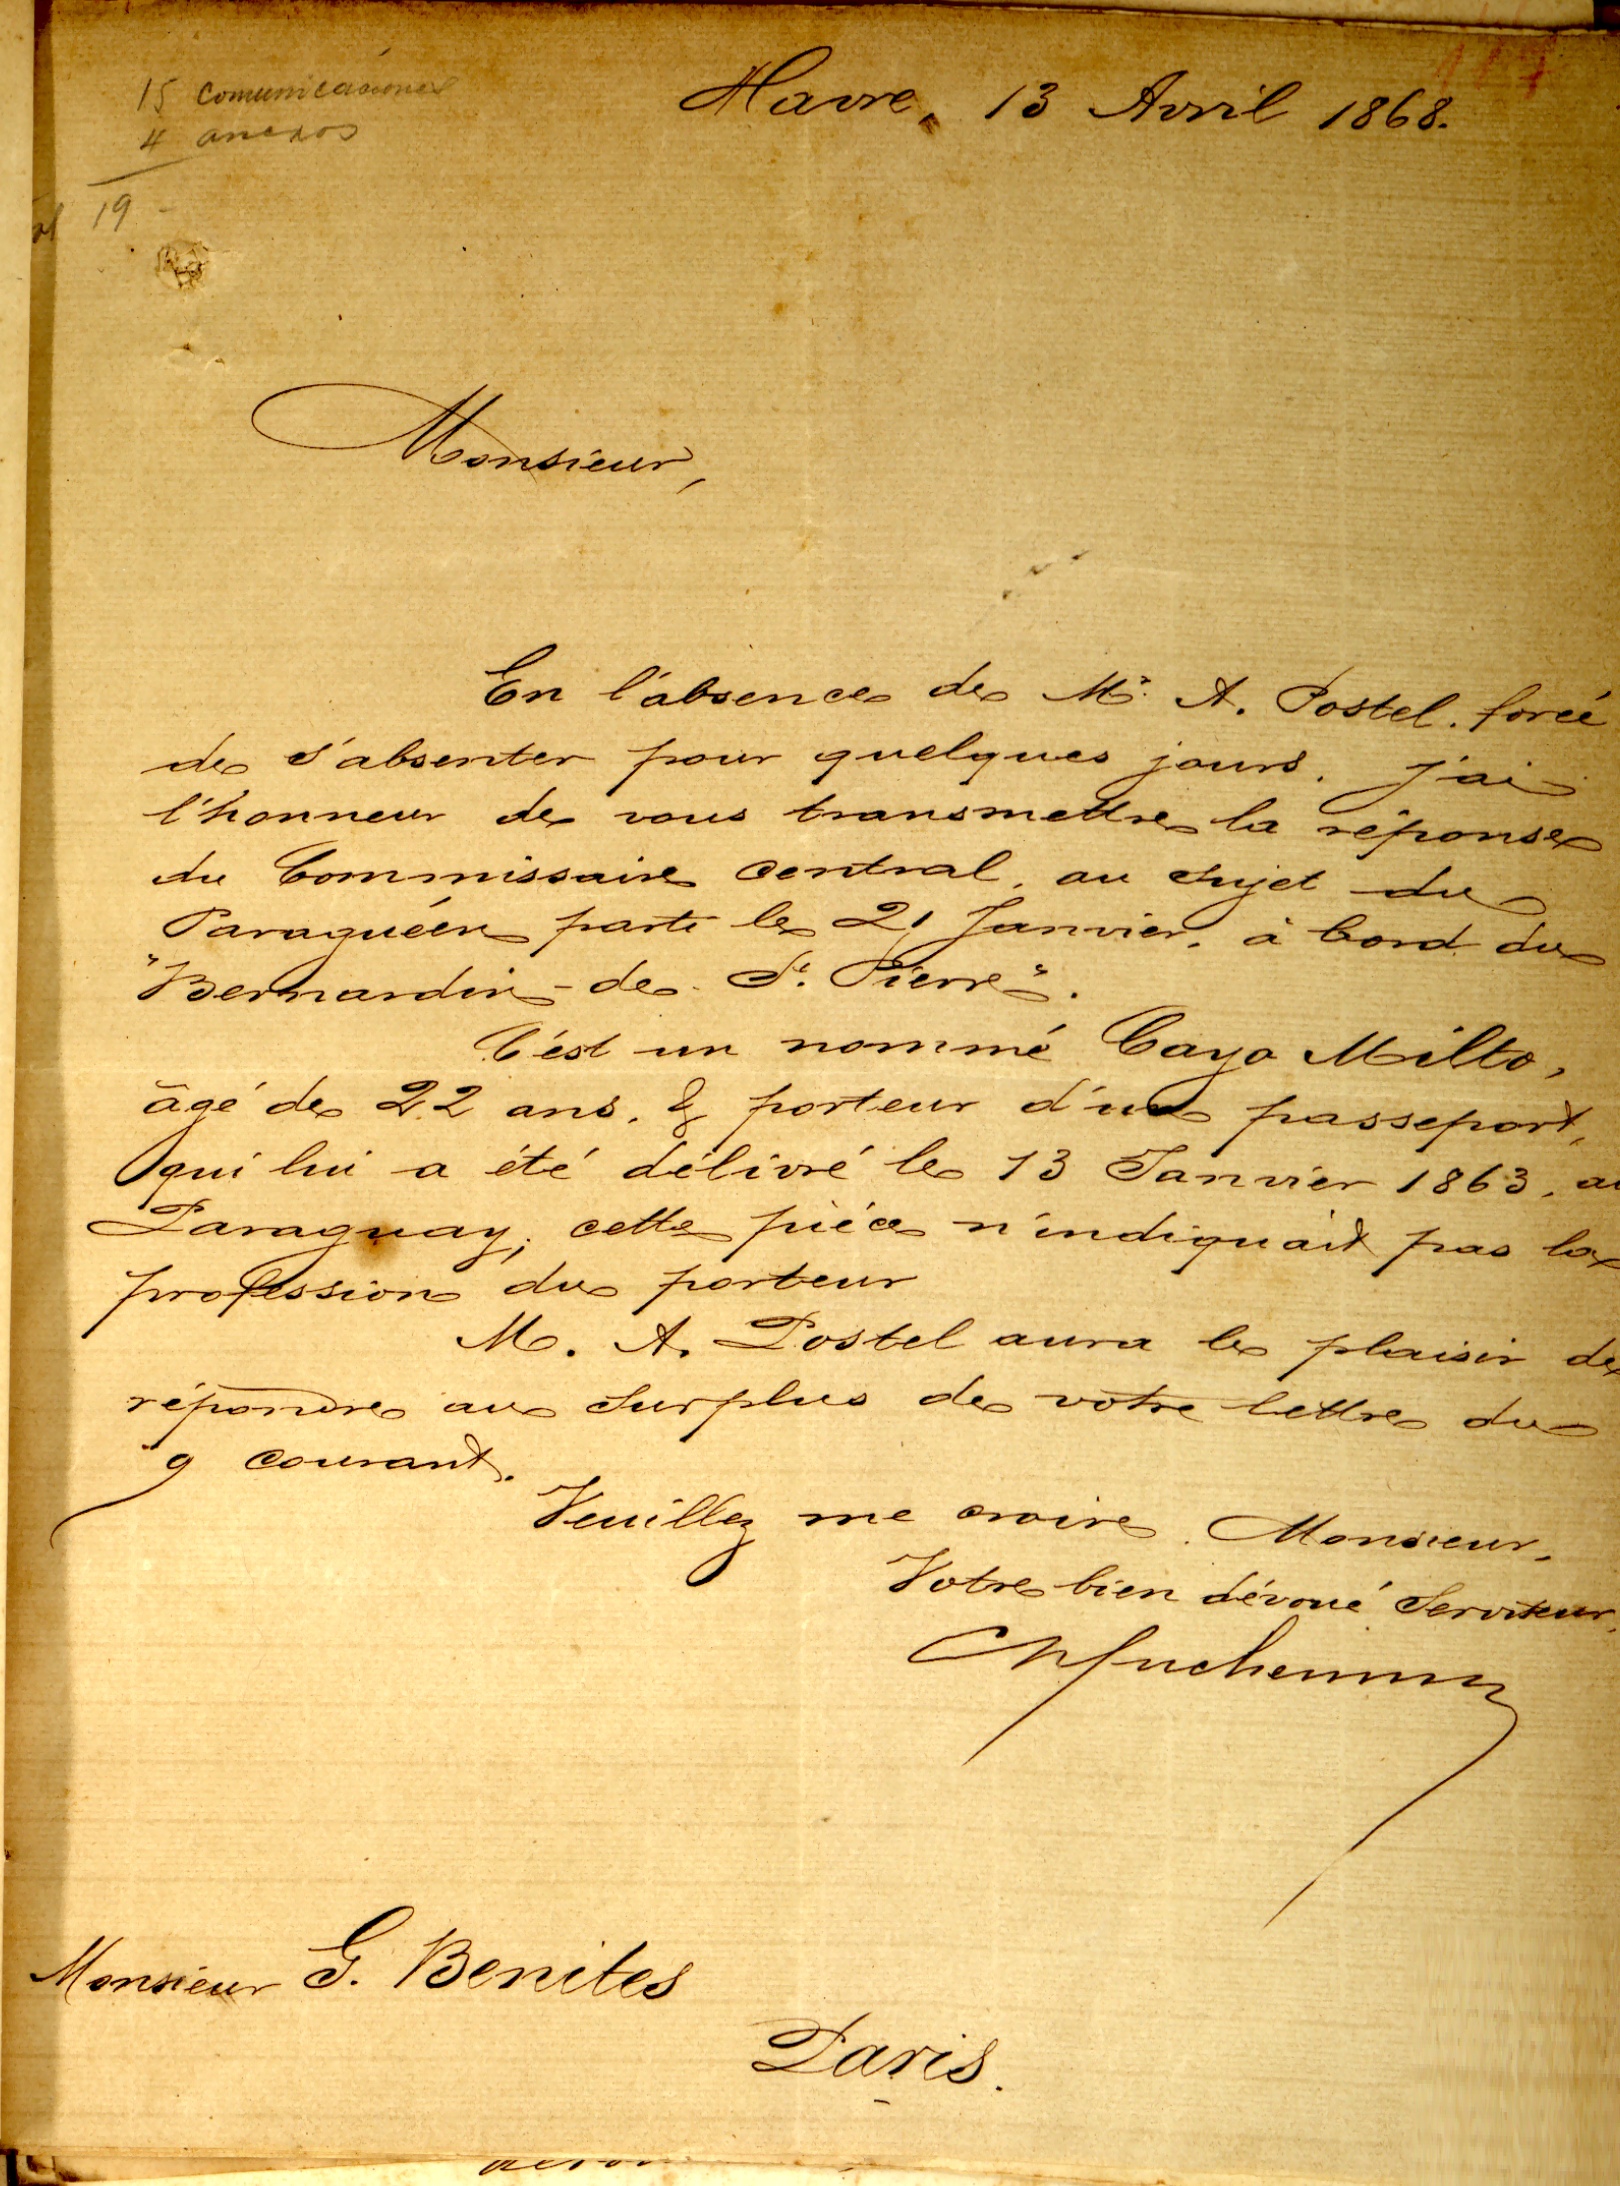 15 comunicaciones
4 anexos
19
Havre, 13 Avril 1868.
Monsieur,
En l'absence de Mr. A. Postel. forcé
de s'absenter pour quelques jours. j'ai
l'honneur de vous transmettre la réponse
du Commissaire central, au sujet du
Paraguéen parti le 21 Janvier, à bord du
"Bernardin-de St. Pierre".
C'est un nommé Cayo Milto,
âgé de 22 ans, & porteur d'un passeport,
qui lui a été délivré le 13 Janvier 1863, au
Paraguay; cette pièce n'indiquait pas la
profession du porteur
M. A. Postel aura le plaisir de
répondre au surplus de votre lettre du
9 courant.
Veuillez me croire, Monsieur,
Votre bien dévoué Serviteur,
Monsieur G. Benites
Paris.